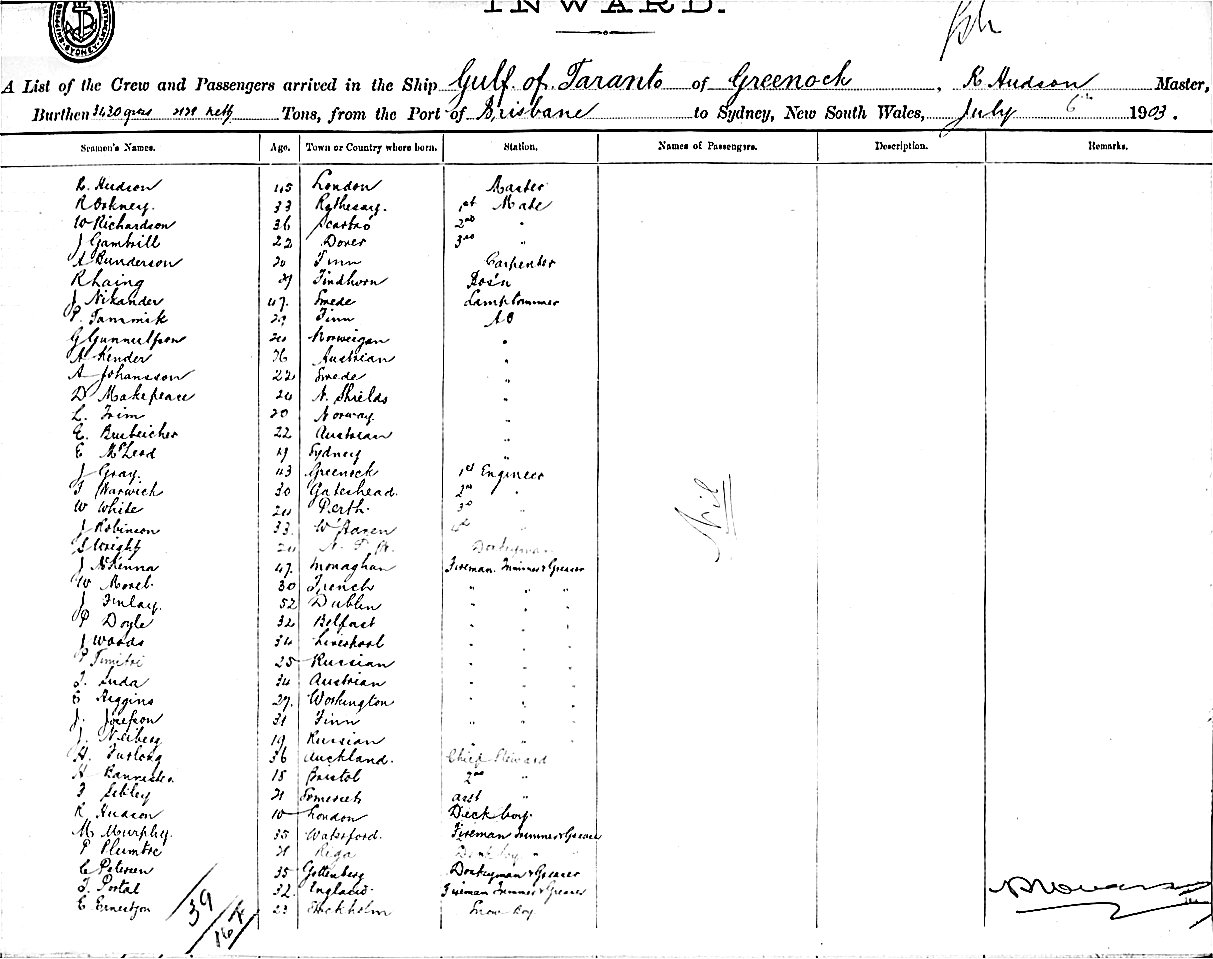 INWARD.
SYDNEY
A List of the Crew and Passengers arrived in the Ship Gulf of Taranto of Greenock, R Hudson Master,
Burthen 3430 gross nett Tons, from the Port of Brisbane to Sydney, New South Wales, July 6th 1903.
Seamen's Names. Age. Town or Country where born. Station. Names of Passengers. Description. Remarks.
R. Hudson 45 London Master
R Orkney. 33 Rothesay. 1st Mate
W Richardson 36 Scarbro 2nd "
J Gambrill 22 Dover 3rd "
A Gunderson 20 Finn Carpenter
R Laing 29 Findhorn Bos'n
J Nikander 47. Swede Lamptrimmer
P. Tammik 29 Finn AB
G Gunnulfson 20 Norweigan "
A Kender 26 Austrian "
A Johansson 22 Swede "
D Makepeace 24 N. Shields "
L. Trim 20 Norway. "
E. Brubeicher 22 Austrian "
E McLeod 19 Sydney "
J Gray. 43 Greenock 1st Engineer
T Warwick 30 Gateshead. 2nd "
W White 24 Perth. 3rd "
J Robinson 33. W Haven 4th "
S Wright 24 Donkeyman
J McKenna 47. Monaghan Fireman Trimmer & Greaser
W Morel 30 French " " "
J Finlay. 52 Dublin " " "
P Doyle 32 Belfast " " "
J Woods 34 Liverpool " " "
P Timitri 25 Russian " " "
T. Luda 34 Austrian " " "
E Higgins 27. Workington " " "
J. Josefson 31 Finn " " "
J. Neiberg 19 Russian " " "
H. Furlong 36 Auckland. Chief Steward
H Bannister 18 Bristol 2nd "
F Sibley 21 Somerset asst "
R Hudson 10 London Deck boy.
M Murphy. 35 Waterford. Fireman Trimmer & Greaser
P Plumtre 21 Riga
C Petersen 35 Gottenberg Donkeyman & Greaser
T. Portal 32. England. Fireman Trimmer & Greaser
E Ernestson 23 Stockholm Boy
Nil
39